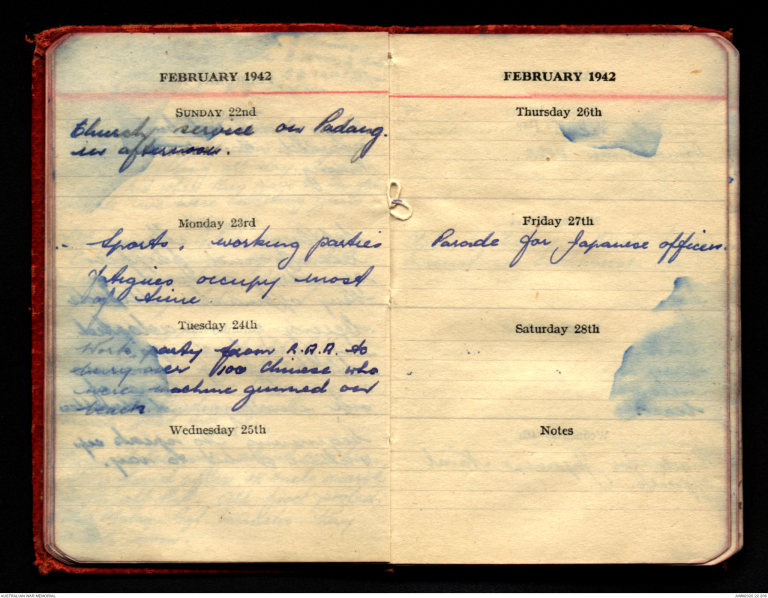 FEBRUARY 1942
SUNDAY 22nd
Church service on Padang.
in afternoon.
Monday 23rd
Sports, working parties
Fatigues occupy most
of time.
Tuesday 24th
Work party from R.A.A. to
bury over 100 Chinese who
were machine gunned on
beach
Wednesday 25th
FEBRUARY 1942
Thursday 26th
Friday 27th
Parade for Japanese officers.
Saturday 28th
Notes
AUSTRALIAN WAR MEMORIAL